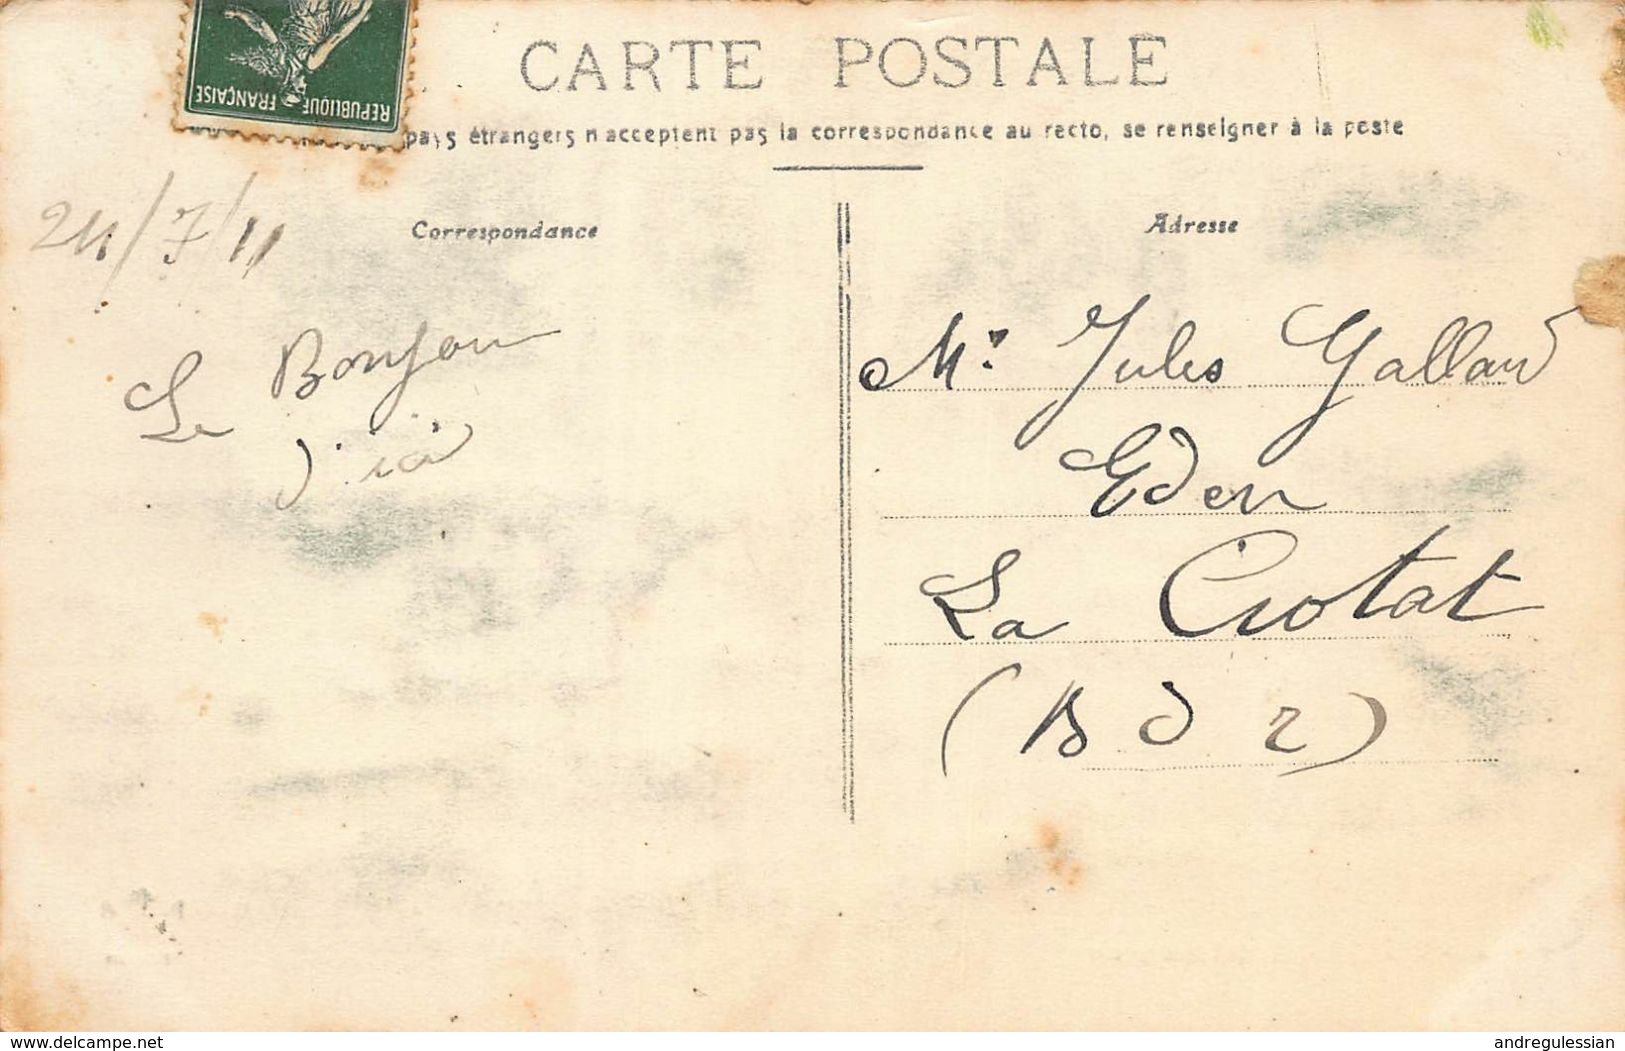 REPUBLIQUE FRANÇAISE
CARTE POSTALE
pays étrangers n'acceptent pas la correspondance au recto, se renseigner à la poste
24/7/11
Correspondance
Le Bonjour
d'ici
Adresse
Mr Jules Galland
Eden
La Ciotat
(B d R)
www.delcampe.net
andregulessian